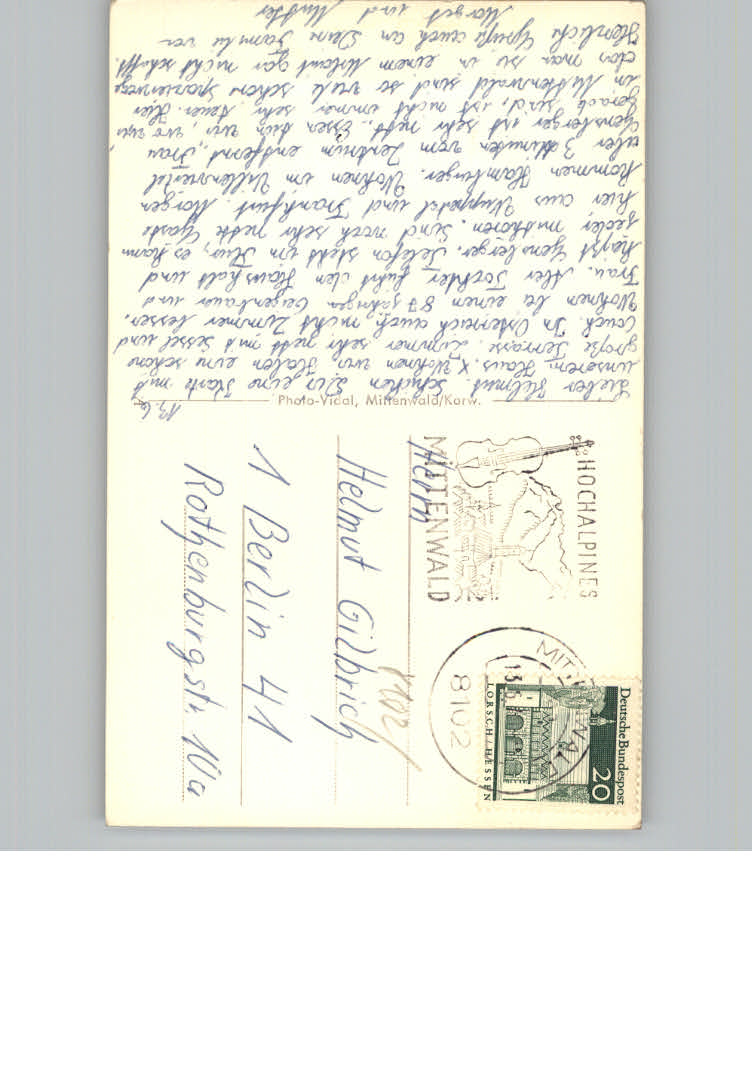 13.6.
Lieber Helmut. Schicken Dir eine Karte mit
unserem Haus. X Wohnen wir. Haben eine schöne
große Terrasse. Zimmer sehr nett mit Sessel und
Couch. In Österreich auch nicht Zimmer besser.
Wohnen bei einen 87 jährigen Geigenbauer und
Frau. Aber Tochter führt den Haushalt und
heißt Gensberger. Telefon steht im Flur, es kann
jeder mithören. Sind noch sehr nette Gäste
hier aus Wuppertal und Frankfurt. Morgen
kommen Hamburger. Wohnen im Villenviertel
aber 3 Minuten vom Zentrum entfernt. Frau
Gensberger ist sehr nett. Essen tun wir, wo wir
gerade sind, ist nicht immer sehr teuer. Hier
in Mittenwald sind so viele schöne Spazierwege
das man sie in einem Urlaub gar nicht schafft.
Herzliche Grüße auch an Deine Familie von
Margot und Mutter
Photo-Vidal, Mittenwald/Korw.
HOCHALPINES
MITTENWALD
8102
13.6
Deutsche Bundespost
20
LORSCH/HESSEN
Herrn
Helmut Gilbrich
1 Berlin 41
Rothenburgstr. 10a
8102/